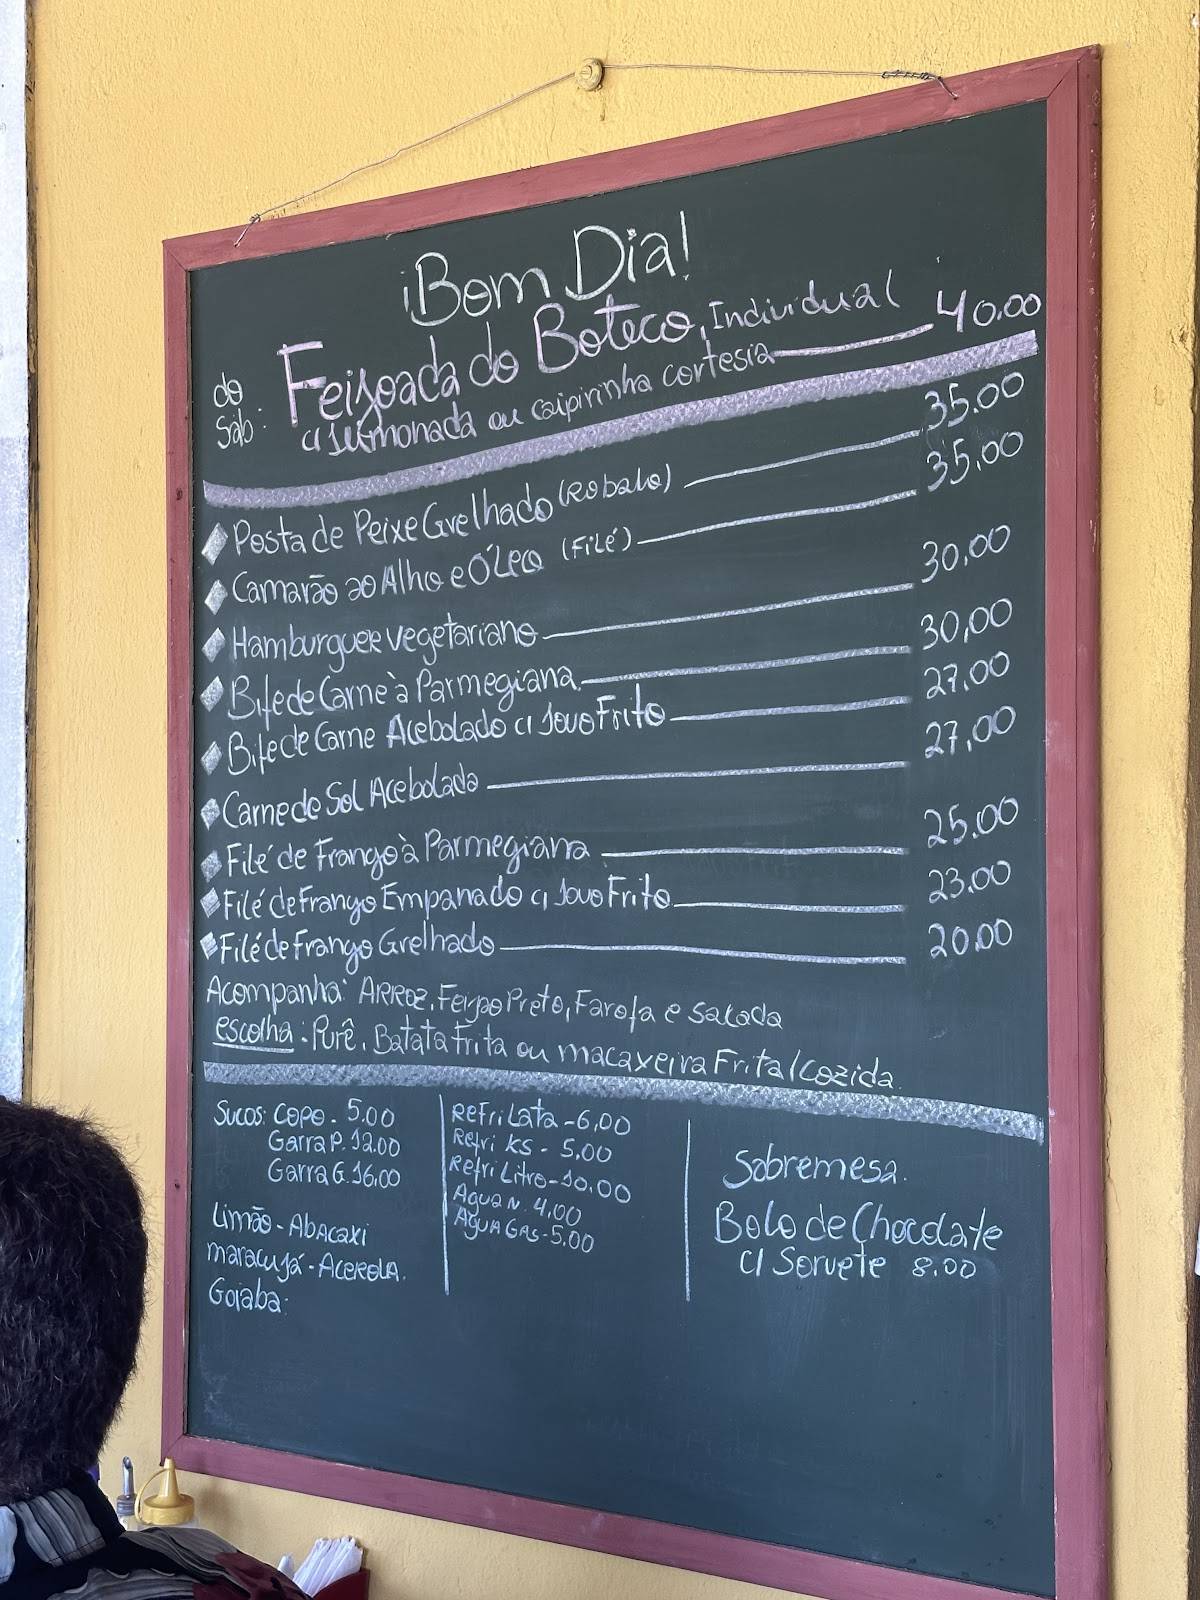 ¡Bom Dia!
do Sáb: Feijoada do Boteco, Individual
c/ limonada ou caipirinha cortesia 40.00
Posta de Peixe Grelhado (Robalo) 35.00
Camarão ao Alho e Óleo (Filé) 35.00
Hamburguer vegetariano 30,00
Bife de Carne à Parmegiana 30,00
Bife de Carne Acebolado c/ Ovo Frito 27.00
Carne de Sol Acebolada 27,00
Filé de Frango à Parmegiana 25.00
Filé de Frango Empanado c/ Ovo Frito 23.00
Filé de Frango Grelhado 20.00
Acompanha: Arroz, Feijão Preto, Farofa e Salada
escolha: Purê, Batata Frita ou macaxeira Frita/Cozida.
Sucos: Copo - 5.00
Garra P. 12.00
Garra G. 16.00
Limão - Abacaxi
maracujá - Acerola.
Goiaba.
Refri Lata - 6,00
Refri KS - 5.00
Refri Litro - 10.00
Agua N. 4.00
Agua Gas - 5.00
Sobremesa.
Bolo de Chocolate
c/ Sorvete 8.00